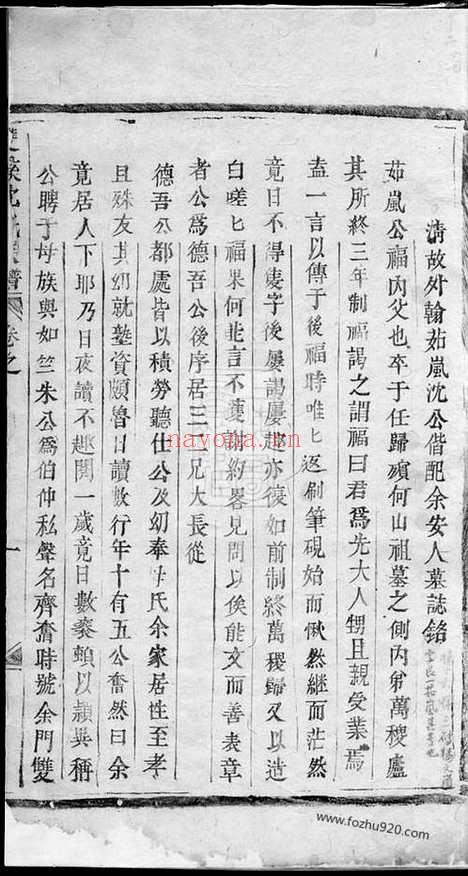 清故外翰茹嵐沈公偕配余安人墓誌銘
茹嵐公福內父也卒于任歸殯何山祖墓之側內弟萬稷廬
其所終三年制福謁之謂福曰君為先大人甥且親受業焉
盍一言以傳于後福時唯匕返刷筆硯始而愀然継而茫然
竟日不得隻字後屢謁屢趣亦復如前制終萬稷歸又以造
白嗟匕福果何能言不獲辭約畧見問以俟能文而善表章
者公為德吾公後序居三二兄大長從
德吾公都處皆以積勞聽仕公及幼奉母氏余家居性至孝
且殊友其幼就塾資頗魯日讀數行年十有五公奮然曰余
竟居人下耶乃日夜讀不趣閱一歲竟日數藜頓以穎異稱
公聘于母族與如竺朱公為伯仲私聲名齊奮時號余門雙
沈氏
譜
卷之
一
nayona.com
www.fozhu920.com